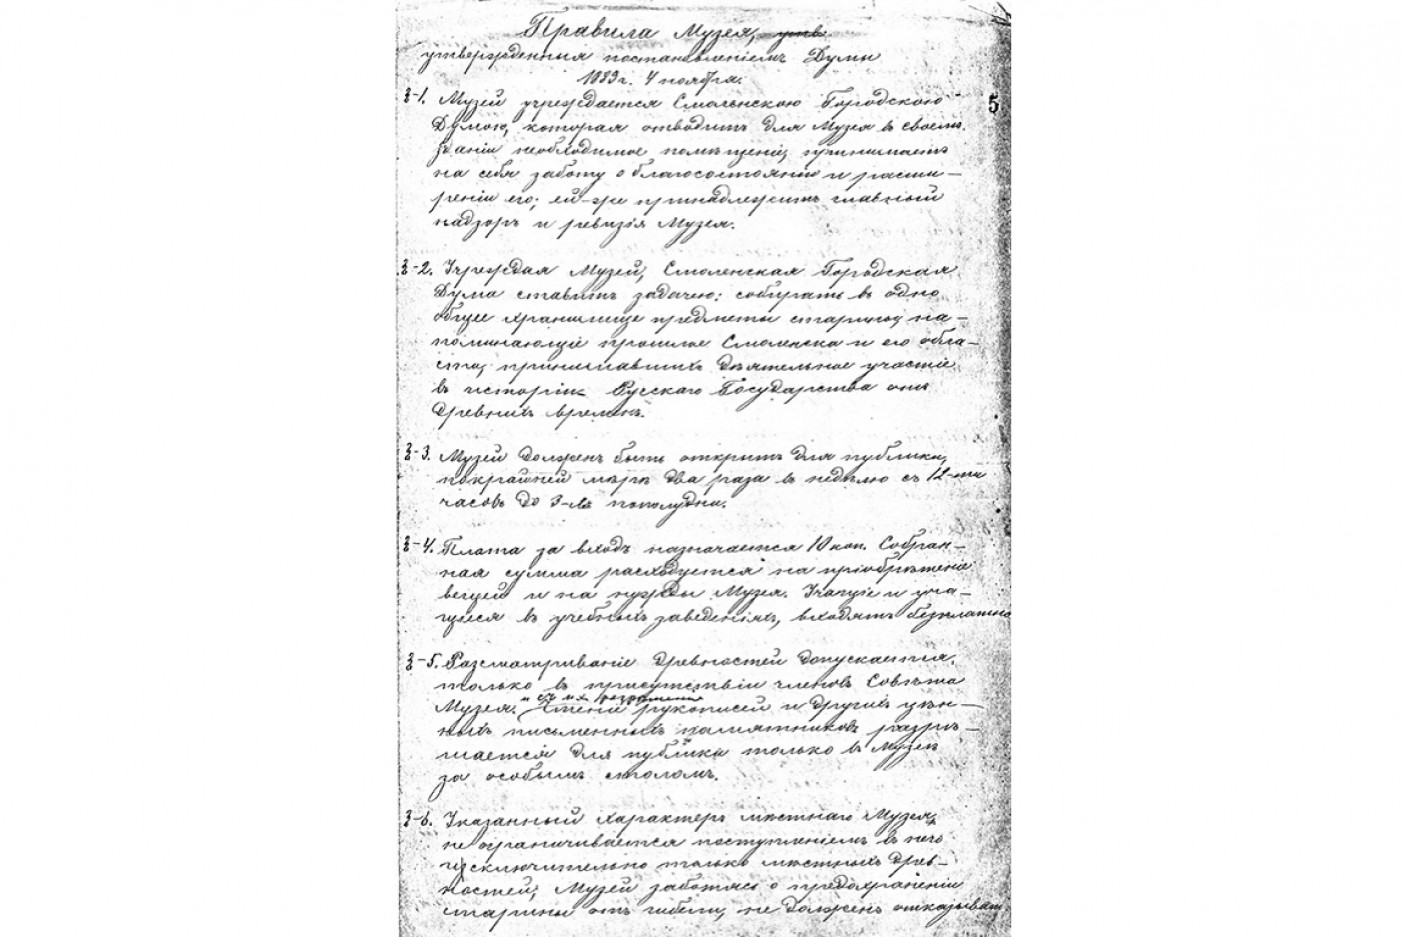 Правила Музея, утв
утвержденныя постановленіемъ Думы
1889 г. 4 ноября.
5
§-1. Музей учреждается Смоленскою Городскою
Думою, которая отводитъ для Музея в своемъ
зданіи необходимое помѣщеніе, принимаетъ
на себя заботу о благосостояніи и расши-
реніи его; ей-же принадлежитъ главный
надзоръ и ревизія Музея.
§-2. Учреждая Музей, Смоленская Городская
Дума ставитъ задачею: собирать въ одно
общее хранилище предметы старины, на-
поминающіе прошлое Смоленска и его обла-
сти, принимавшихъ дѣятельное участіе
въ исторіи Русскаго Государства отъ
древнихъ временъ.
§-3. Музей долженъ быть открытъ для публики,
покрайней мѣрѣ два раза в недѣлю съ 12-ти
часовъ до 3-хъ пополудни.
§-4. Плата за входъ назначается 10 коп. Собран-
ная сумма расходуется на пріобрѣтеніе
вещей и на нужды Музея. Учащіе и уча-
щіеся въ учебныхъ заведеніяхъ, входятъ безплатно
§-5. Разсматриваніе древностей допускается,
только въ присутствіи членовъ Совѣта
и съ ихъ разрѣшенія
Музея. Чтеніе рукописей и другихъ цѣн-
ныхъ письменныхъ памятниковъ разрѣ-
шается для публики только въ Музеѣ
за особымъ столомъ.
§-6. Указанный характеръ мѣстнаго Музея,
не ограничивается поступленіемъ въ него
исключительно только мѣстныхъ древ-
ностей; Музей заботясь о предохраненіи
старины отъ гибели, не долженъ отказыват